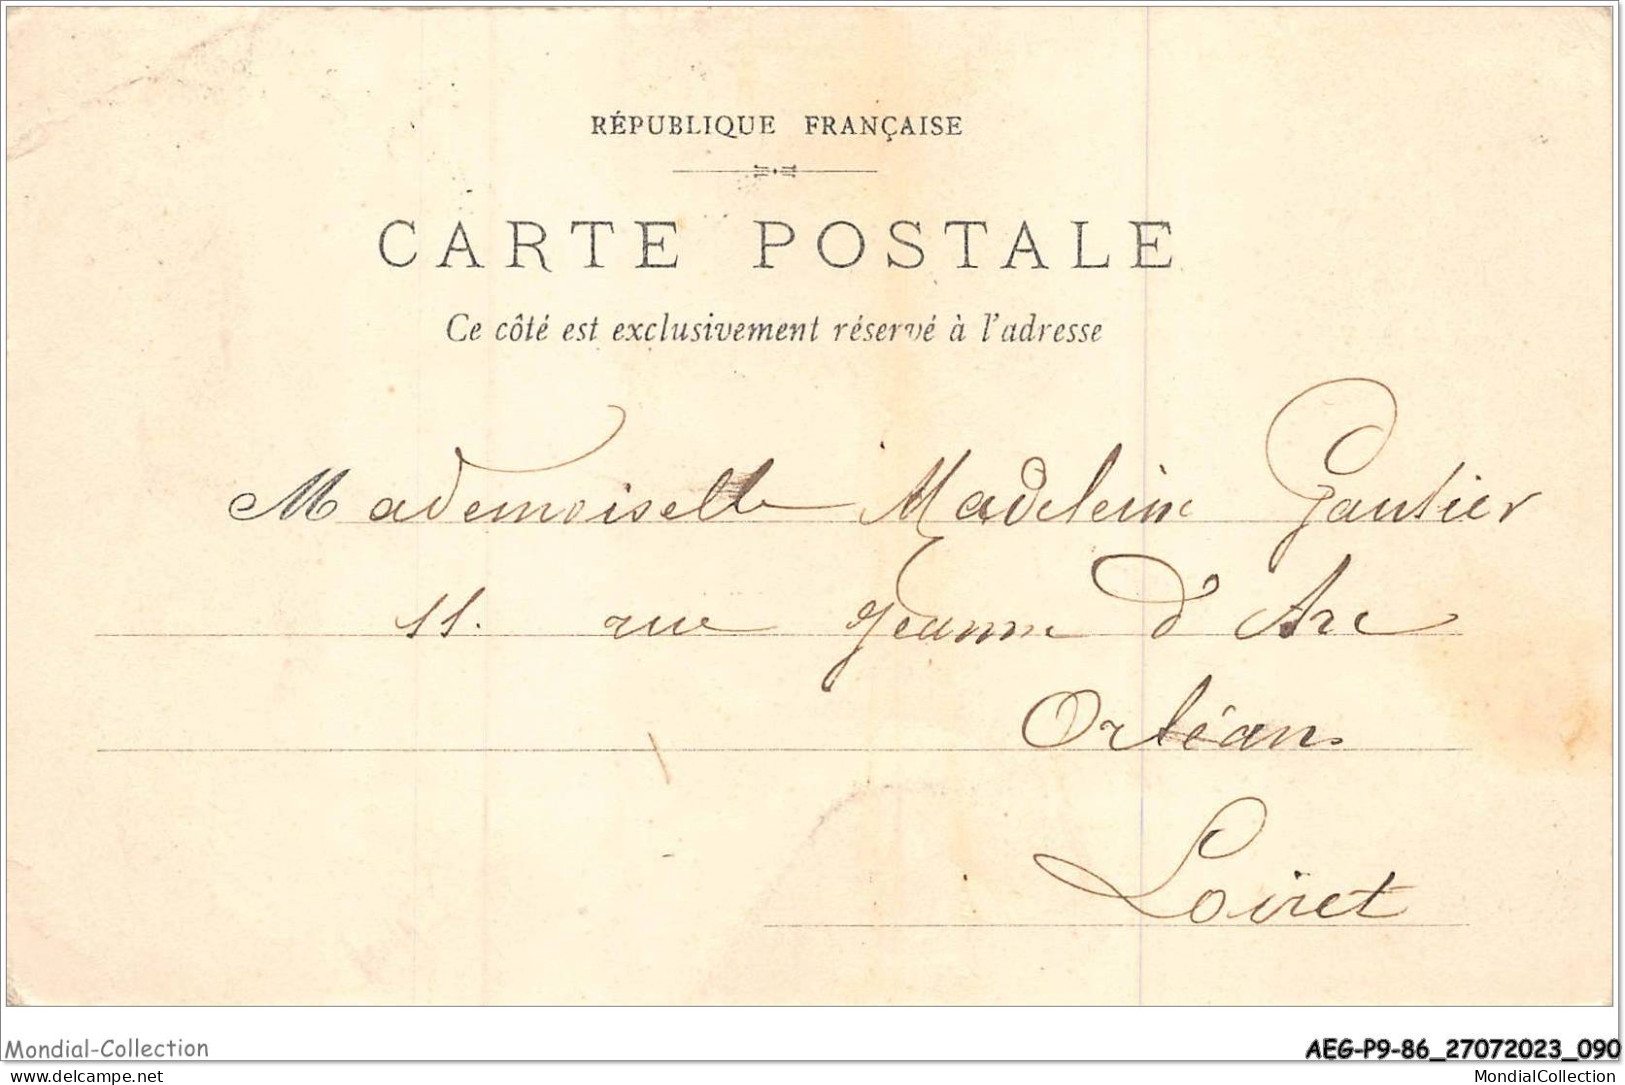 RÉPUBLIQUE FRANÇAISE
CARTE POSTALE
Ce côté est exclusivement réservé à l'adresse
Mademoiselle Madeleine Gautier
11. rue Jeanne d'Arc
Orléans
Loiret
Mondial-Collection
AEG-P9-86_27072023_090
delcampe.net
MondialCollection